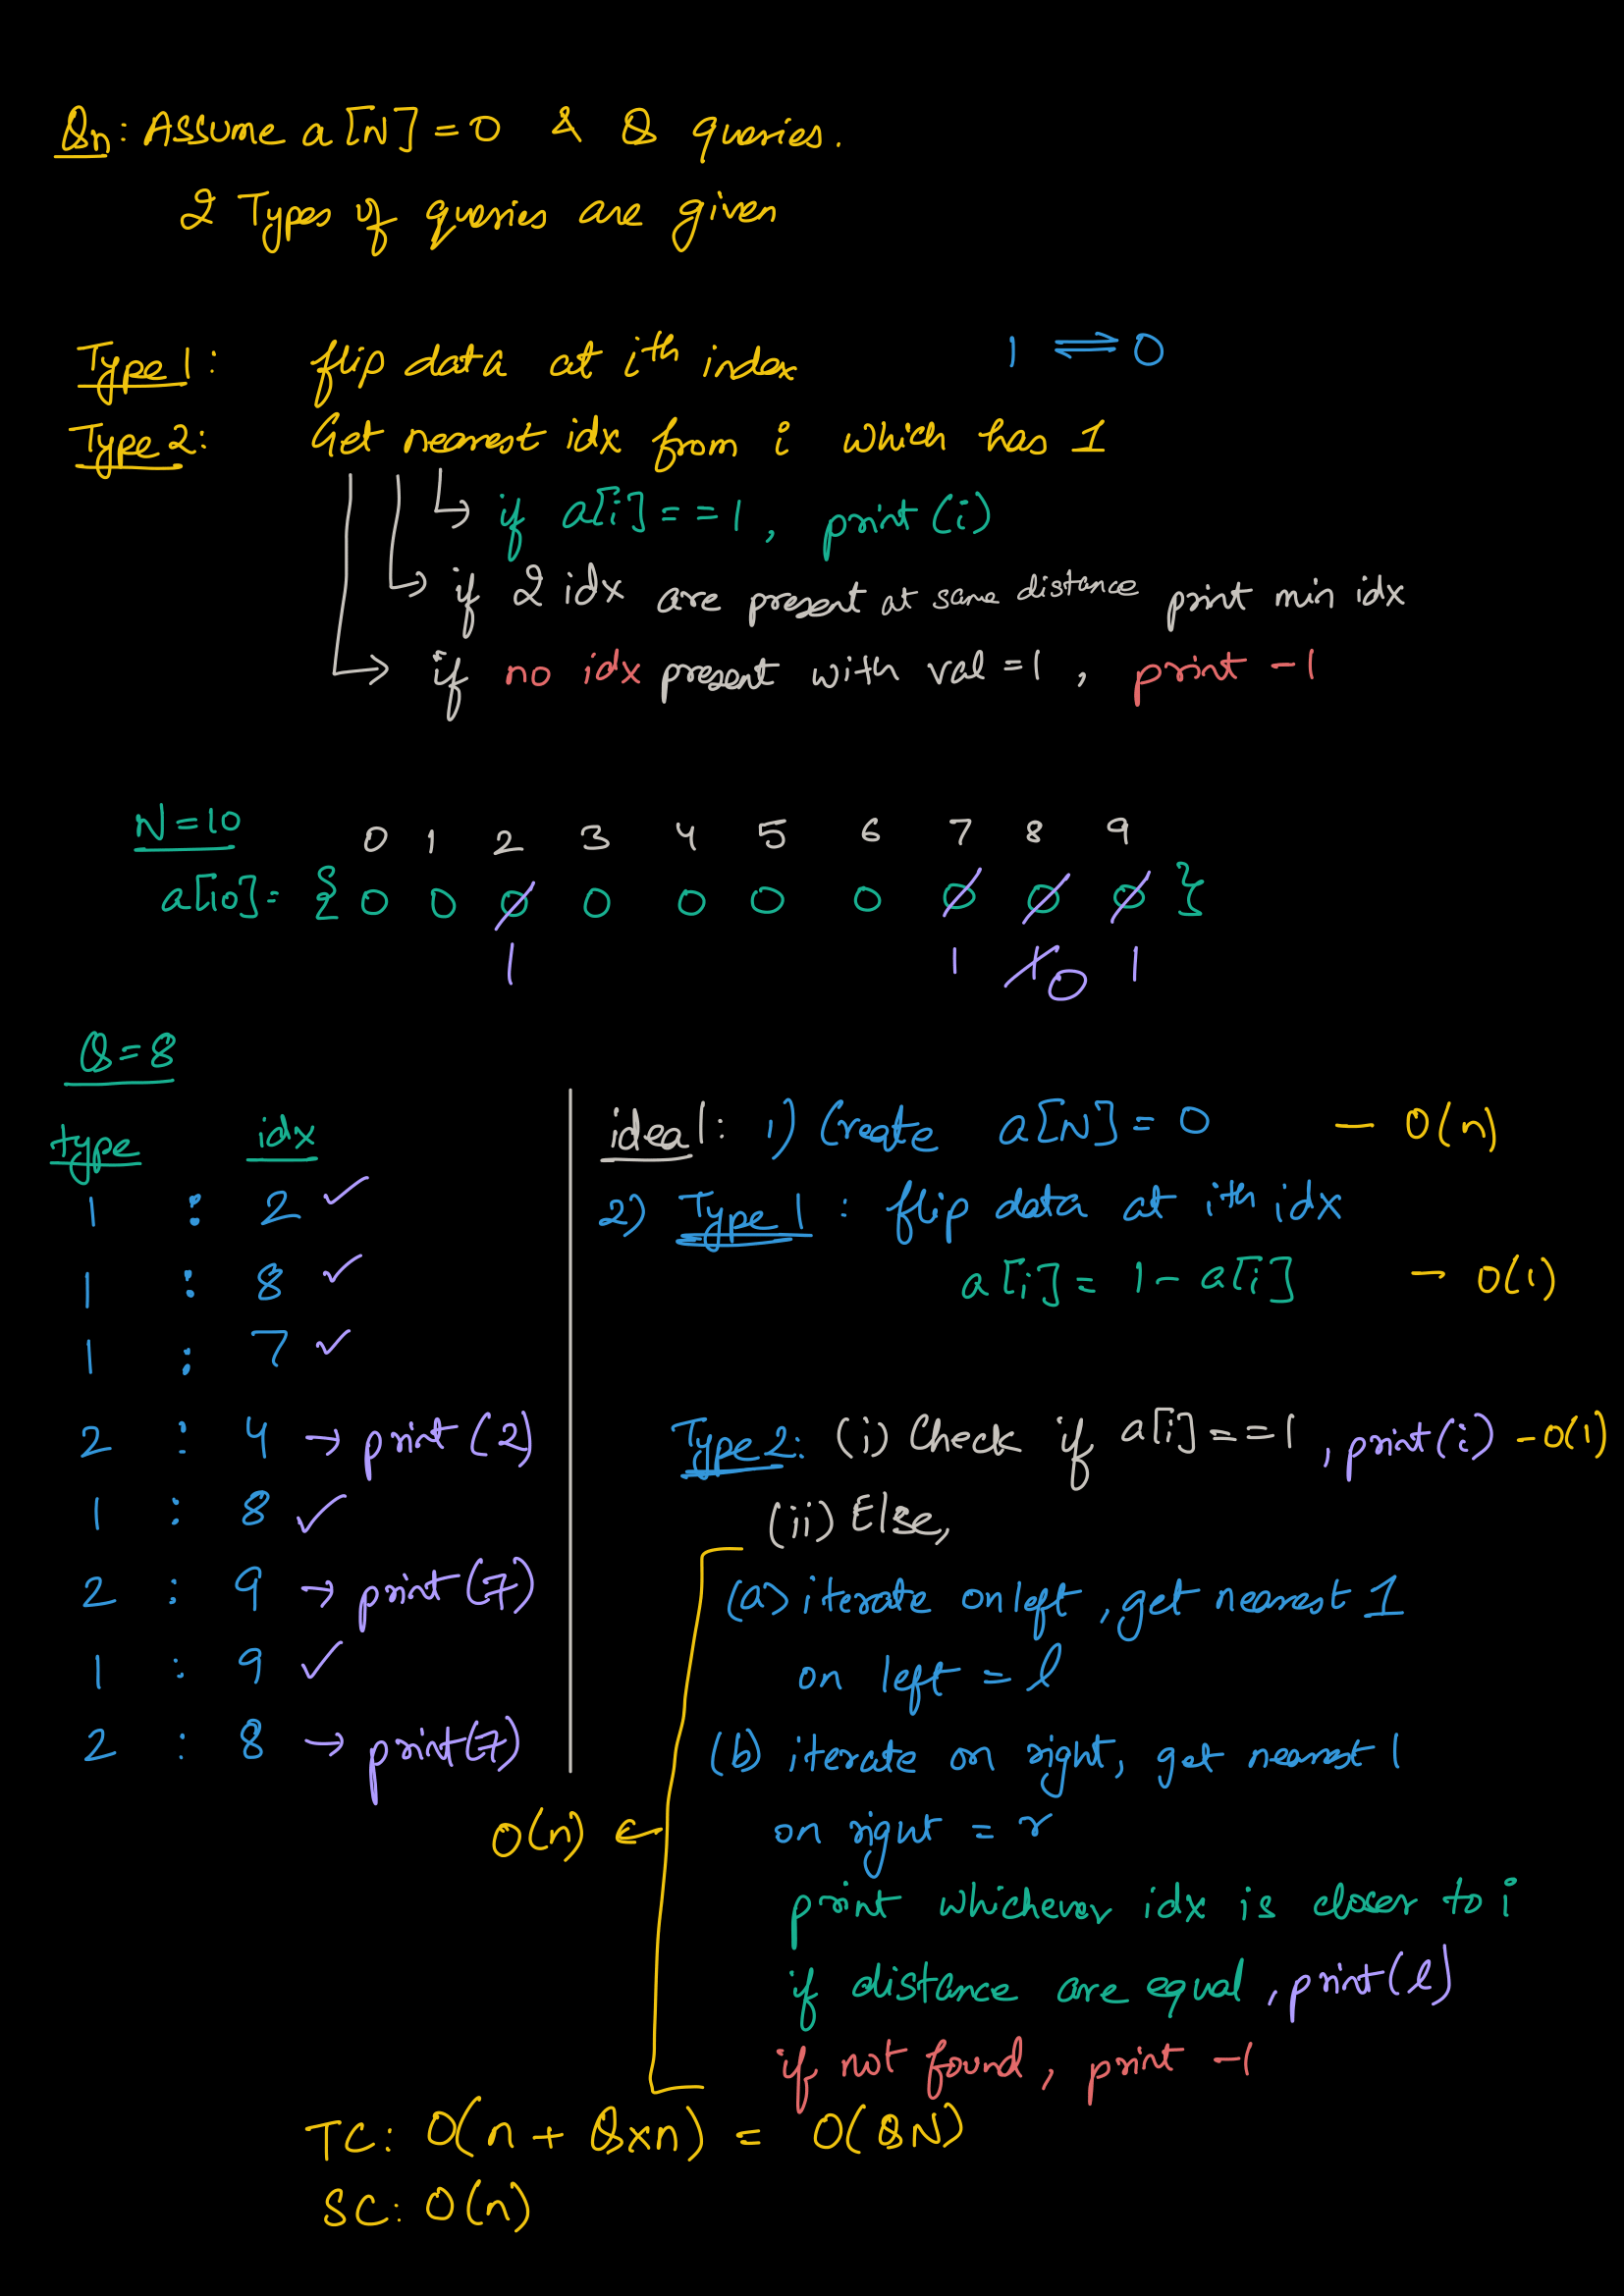 Qn: Assume a[N] = 0 & Q queries.
2 Types of queries are given
Type 1: flip data at ith index 1 ⇌ 0
Type 2: Get nearest idx from i which has 1
↳ if a[i] == 1, print(i)
↳ if 2 idx are present at same distance print min idx
↳ if no idx present with val = 1, print -1
N = 10 0 1 2 3 4 5 6 7 8 9
a[10] = { 0 0 0 0 0 0 0 0 0 0 }
1 1 1 0 1
Q = 8
type idx
1 : 2 ✓
1 : 8 ✓
1 : 7 ✓
2 : 4 → print(2)
1 : 8 ✓
2 : 9 → print(7)
1 : 9 ✓
2 : 8 → print(7)
idea 1: 1) Create a[N] = 0 — O(n)
2) Type 1 : flip data at ith idx
a[i] = 1 - a[i] — O(1)
Type 2: (i) Check if a[i] == 1, print(i) - O(1)
(ii) Else,
(a) iterate on left, get nearest 1
on left = l
(b) iterate on right, get nearest 1
on right = r
O(n) ←
print whichever idx is closer to i
if distance are equal, print(l)
if not found, print -1
TC: O(n + Q×n) = O(QN)
SC: O(n)